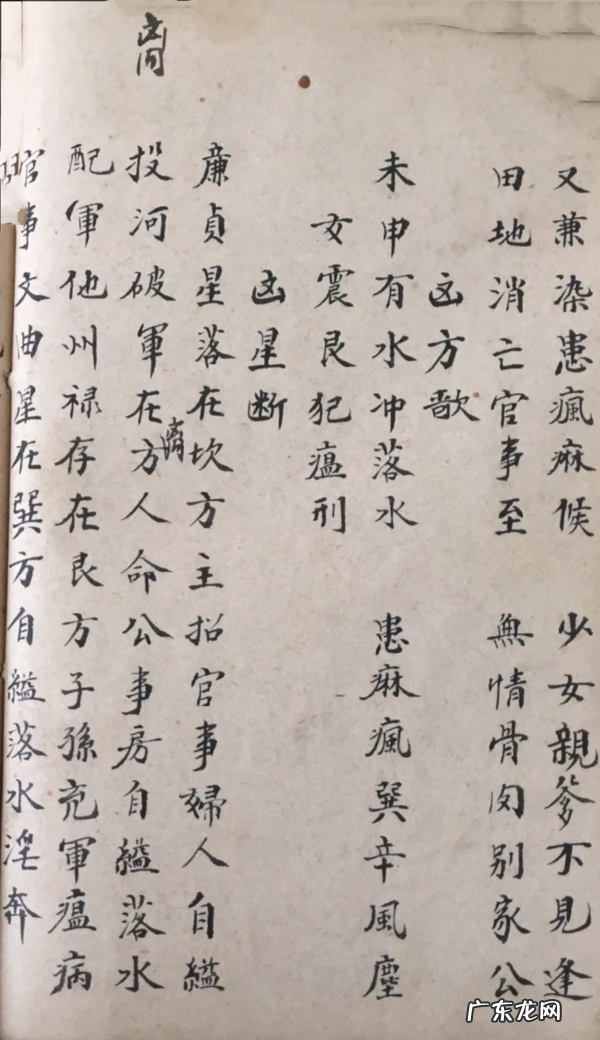 又兼染患瘋麻候 少女親爹不見逢
田地消亡官事至 無情骨肉别家公
凶方歌
未申有水冲落水 患麻瘋巽辛風塵
女震艮犯瘟刑
凶星断
廉貞星落在坎方主招官事婦人自縊
投河破軍在方人命公事房自縊落水
离
配軍他州禄存在艮方子孫充軍瘟病
官事文曲星在巽方自縊落水淫奔
广东龙网